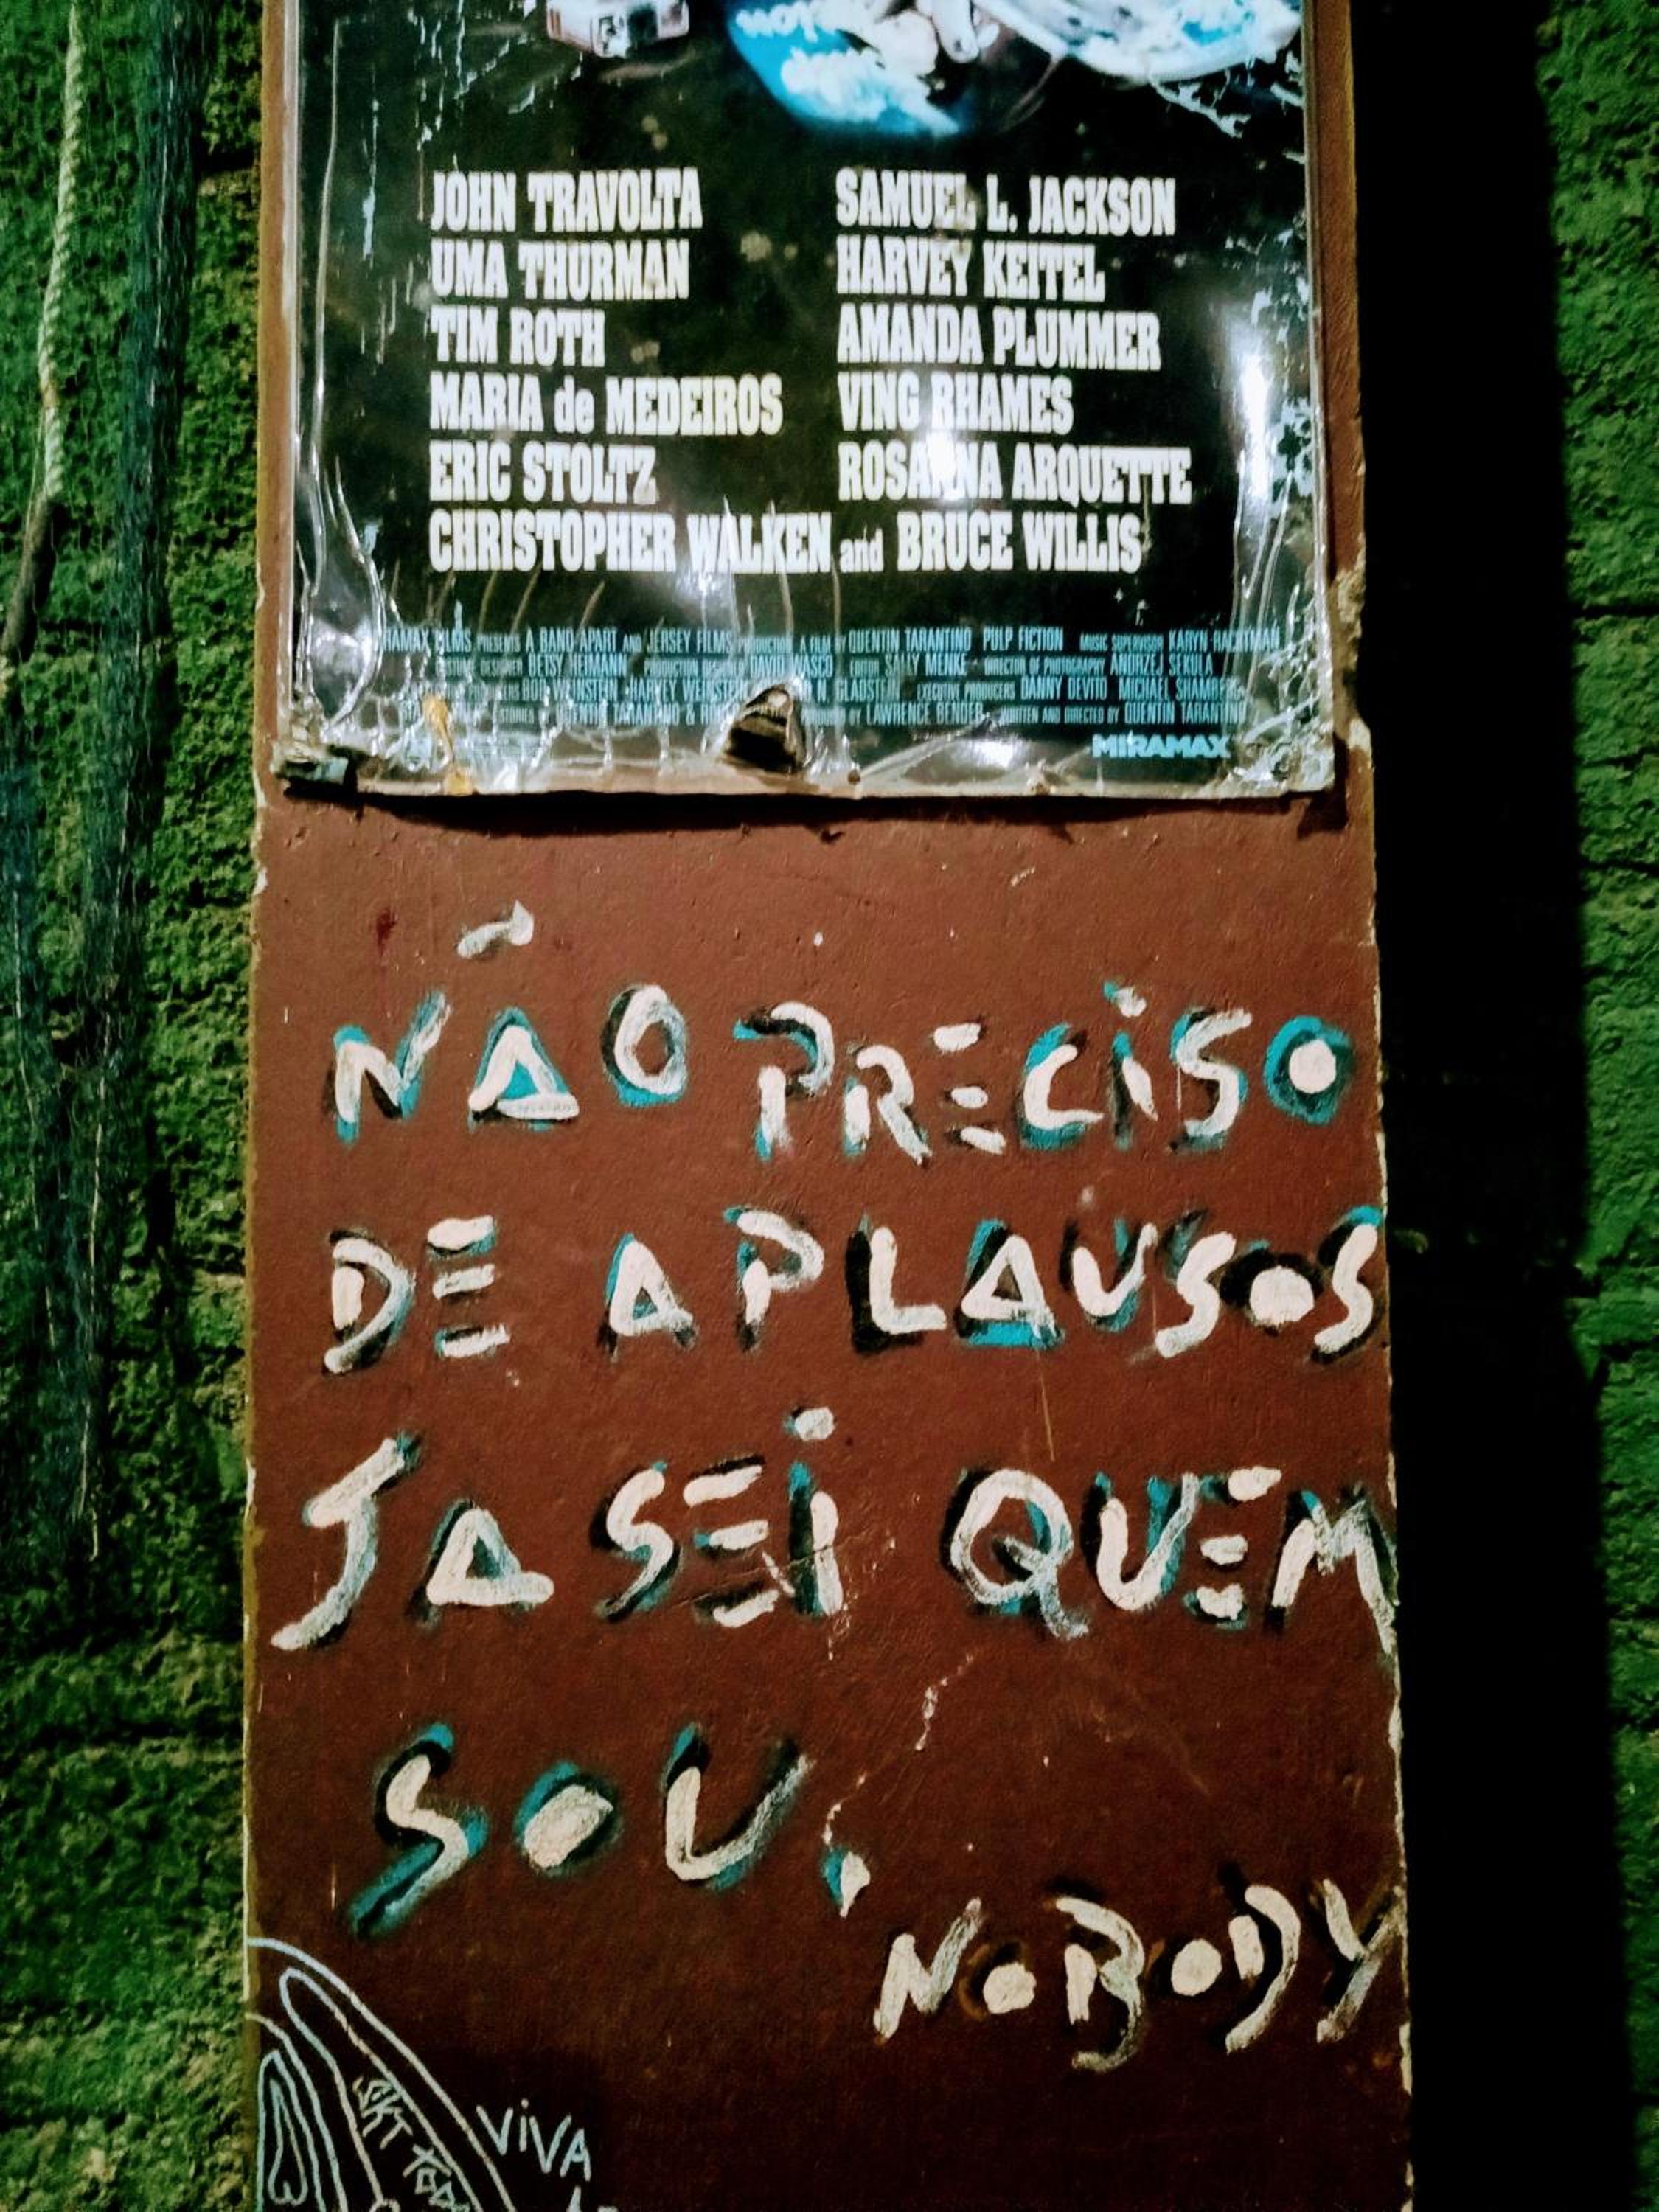 JOHN TRAVOLTA SAMUEL L. JACKSON
UMA THURMAN HARVEY KEITEL
TIM ROTH AMANDA PLUMMER
MARIA de MEDEIROS VING RHAMES
ERIC STOLTZ ROSANNA ARQUETTE
CHRISTOPHER WALKEN and BRUCE WILLIS
PRESENTS A BAND APART AND JERSEY FILMS A FILM BY QUENTIN TARANTINO PULP FICTION MUSIC SUPERVISOR KARYN
DESIGNER BETSY HEIMANN PRODUCTION DAVID WASCO SALLY MENKE DIRECTOR OF PHOTOGRAPHY ANDRZEJ SEKULA
WEINSTEIN HARVEY WEINSTEIN N. GLADSTEIN EXECUTIVE PRODUCERS DANNY DEVITO MICHAEL
STORIES QUENTIN TARANTINO & BY LAWRENCE BENDER WRITTEN AND DIRECTED BY QUENTIN
MIRAMAX
NÃO PRECISO
DE APLAUSOS
JA SEI QUEM
SOU.
NOBODY
VIVA